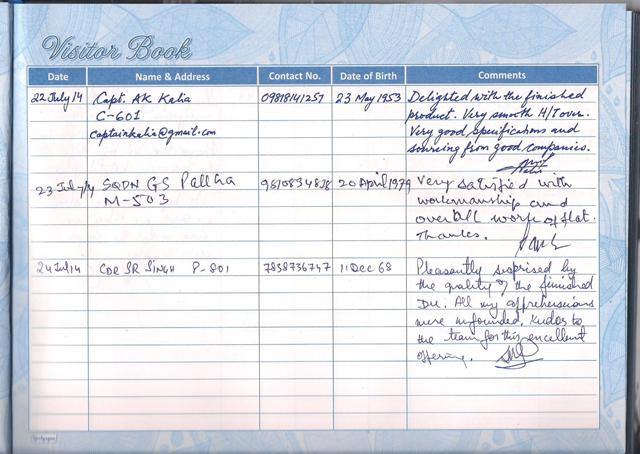 Visitor Book
Date Name & Address Contact No. Date of Birth Comments
22 July 14 Capt. AK Kalia 09818141257 23 May 1953 Delighted with the finished
C-601 product. Very smooth H/T over.
captainkalia@gmail.com Very good specifications and
sourcing from good companies.
23 July 14 SQDN GS Pallha 9810834838 20 April 1979 Very satisfied with
M-503 workmanship and
overall work of flat.
Thanks.
24 Jul 14 CDR SR SINGH P-801 7838736747 11 Dec 68 Pleasantly suprised by
the quality of the finished
DU. All my apprehensions
were unfounded. Kudos to
the team for this excellent
offering.